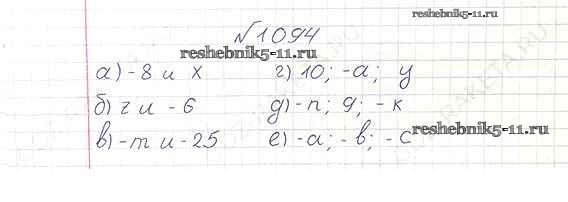 №1094
reshebnik5-11.ru
reshebnik5-11.ru
а) -8 и х г) 10; -а; у
б) г и -6 д) -п; 9; -к
в) -т и -25 е) -а; -в; -с
reshebnik5-11.ru